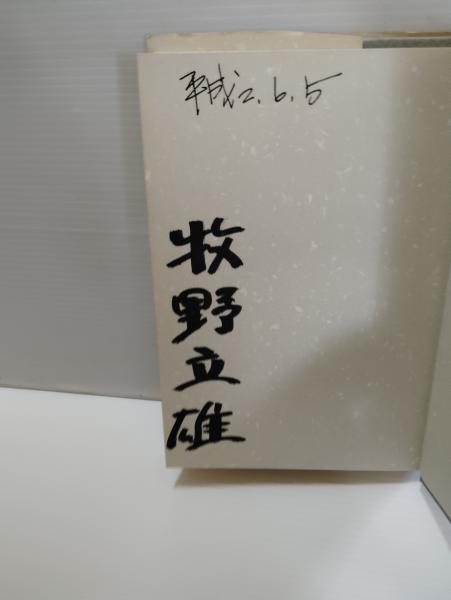 平成2.6.5
牧野立雄